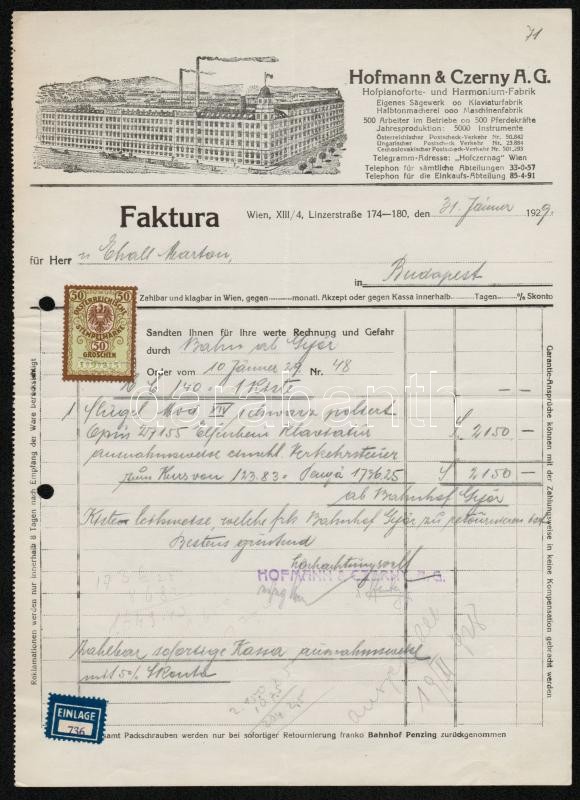 71
Hofmann & Czerny A.G.
Hofpianoforte- und Harmonium-Fabrik
Eigenes Sägewerk oo Klaviaturfabrik
Halbtonmacherei ooo Maschinenfabrik
500 Arbeiter im Betriebe oo 500 Pferdekräfte
Jahresproduktion: 5000 Instrumente
Österreichischer Postscheck-Verkehr Nr. 50.842
Ungarischer Postscheck-Verkehr Nr. 23.884
Cechoslovakischer Postscheck-Verkehr Nr. 501.293
Telegramm-Adresse: „Hofczernag" Wien
Telephon für sämtliche Abteilungen 33-0-57
Telephon für die Einkaufs-Abteilung 85-4-91
Faktura
Wien, XIII/4, Linzerstraße 174—180, den 31. Jänner 1929.
für Herr Ehall Marton,
in Budapest
Zahlbar und klagbar in Wien, gegen monatl. Akzept oder gegen Kassa innerhalb Tagen % Skonto
50 50
ÖSTERREICHISCHE
STEMPELMARKE
50
GROSCHEN
Sandten Ihnen für Ihre werte Rechnung und Gefahr
durch Bahn ab Györ
Order vom 10 Jänner 29 Nr. 48
140 1 Kiste
1 Flügel Mod XIV schwarz poliert
27155 Elfenbein Klaviatur S 2150 —
ausnahmsweise Verkehrssteuer
zum Kurs von 123.83 = Pengö 1736.25 S 2150 —
ab Bahnhof Györ
Kisten leihweise, welche frk Bahnhof Györ zu retournieren ist
Bestens grüssend
Hochachtungsvoll
HOFMANN & CZERNY A. G.
Zahlbar sofortige Kassa ausnahmsweise
mit 5% Skonto
EINLAGE
736
amt Packschrauben werden nur bei sofortiger Retournierung franko Bahnhof Penzing zurückgenommen
Reklamationen werden nur innerhalb 8 Tagen nach Empfang der Ware berücksichtigt
Garantie-Ansprüche können mit der Zahlungsweise in keine Kompensation gebracht werden
darabanth